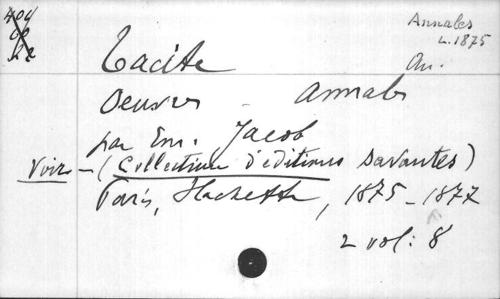 Annales
L. 1875
An.
Tacite
Oeuvres Annales
par Em. Jacob
Voir - (Collection d'éditions savantes)
Paris, Hachette, 1875-1877
2 vol: 8